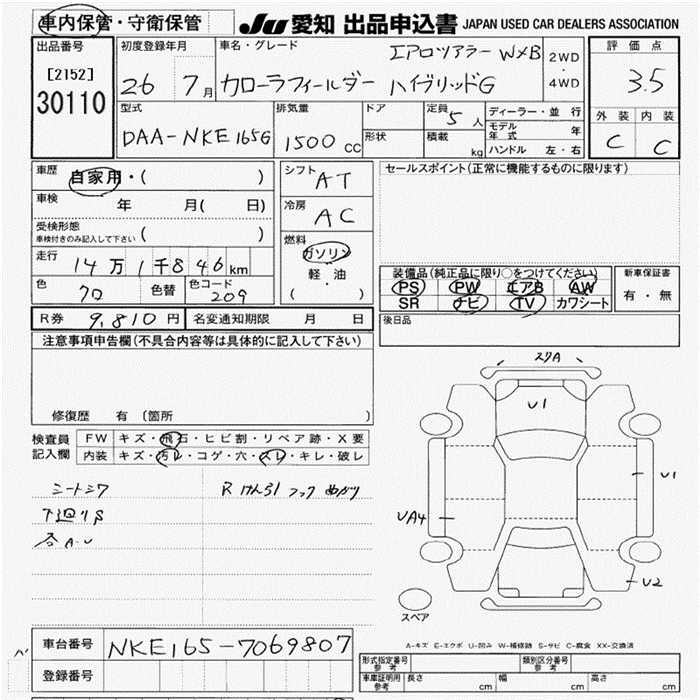 車内保管・守衛保管
JU 愛知 出品申込書 JAPAN USED CAR DEALERS ASSOCIATION
出品番号
[2152]
30110
初度登録年月
26 7月
車名・グレード
エアロツアラー W×B
カローラフィールダー ハイブリッドG
2WD
・
4WD
評価点
3.5
外装 内装
C C
型式
DAA-NKE165G
排気量
1500 CC
ドア
形状
定員 5人
積載 kg
ディーラー・並行
モデル年式 年
ハンドル 左・右
車歴
自家用・( )
車検
年 月( 日)
受検形態
車検付きのみ記入して下さい ( )
走行
14万1千846km
色
クロ
色替
色コード
209
シフト
AT
冷房
AC
燃料
ガソリン
軽・油
( )
セールスポイント(正常に機能するものに限ります)
装備品(純正品に限り○をつけてください)
PS PW エアB AW
SR ナビ TV カワシート
新車保証書
有・無
R券 9,810円 名変通知期限 月 日
後日品
注意事項申告欄(不具合内容等は具体的に記入して下さい)
修復歴 有 〔箇所 〕
検査員
記入欄
FW キズ・飛石・ヒビ割・リペア跡・X要
内装 キズ・汚レ・コゲ・穴・スレ・キレ・破レ
シートシワ
下廻りS
各A・U
R けん引フック めがり
スリA
U1
U1
UA4
U2
スペア
A-キズ E-エクボ U-凹み W-補修跡 S-サビ C-腐食 XX-交換済
車台番号 NKE165-7069807
登録番号
形式指定番号
参考
類別区分番号
参考
車庫証明用
参考
長さ cm 幅 cm 高さ cm